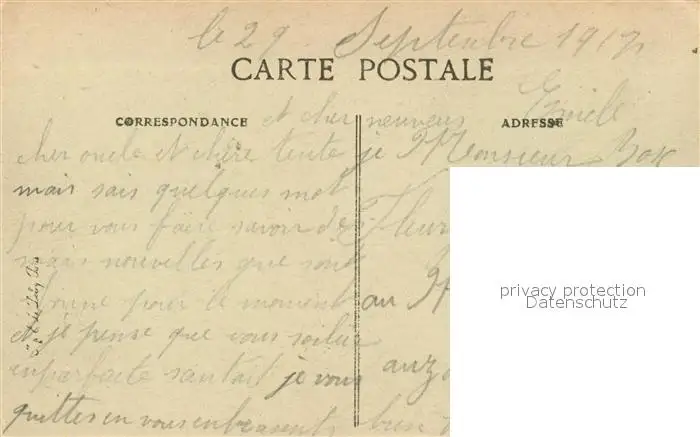 le 29 Septenbre 1917
CARTE POSTALE
CORRESPONDANCE
ADRESSE
et cher neuveus Emile
cher oncle et chère tente je
mais sais quelques mot
pour vous faire savoir de
mais nouvelles que sont
bonne pour le moment
et je pense que vous
en parfaite santait je vous
quittes en vous enbrassent bien
Monsieur
Fleur
au
auz
privacy protection
Datenschutz